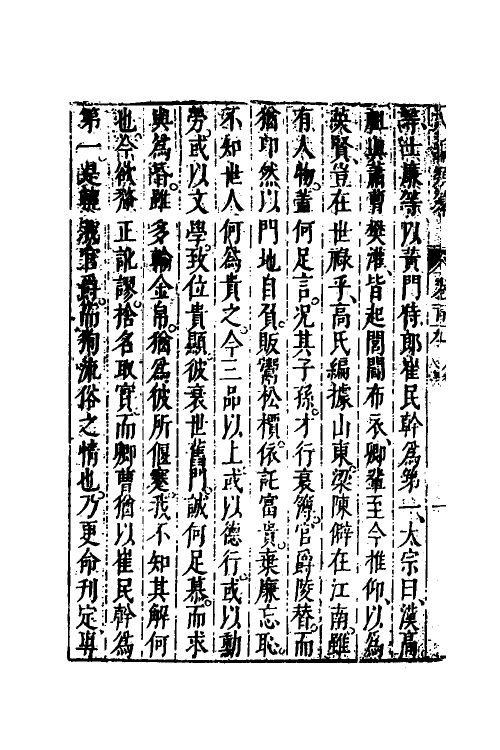 等士廉等以黃門侍郎崔民幹為第一、太宗曰、漢高
祖與蕭曹樊灌、皆起閭閻布衣、卿輩至今推仰、以為
英賢、豈在世祿乎、高氏編據山東、梁陳僻在江南、雖
有人物、蓋何足言。况其子孫。才行衰薄。官爵陵替。而
猶卬然以門地自負、販鬻松檟、依託富貴、棄廉忘恥。
不知世人何為貴之。今三品以上或以德行。或以勳
勞。或以文學。致位貴顯。彼衰世舊門。誠何足慕。而求
與為昏。雖多輸金帛。猶為彼所偃蹇。我不知其解何
也。今欲釐正訛謬。捨名取實。而卿曹猶以崔民幹為
第一、是輕我官爵。而狥流俗之情也。乃更命刊定、專